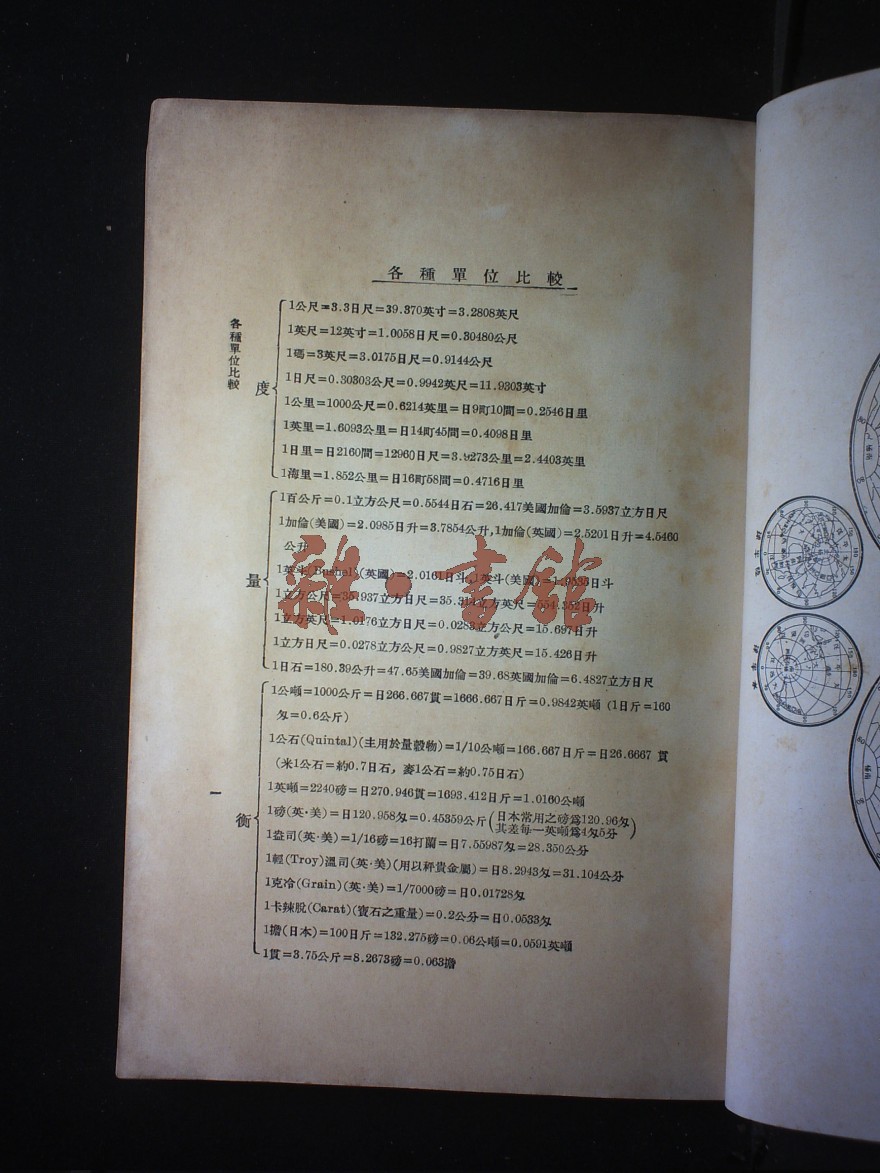 各種單位比較
各種單位比較
度
1公尺=3.3日尺=39.370英寸=3.2808英尺
1英尺=12英寸=1.0058日尺=0.30480公尺
1碼=3英尺=3.0175日尺=0.9144公尺
1日尺=0.30303公尺=0.9942英尺=11.9303英寸
1公里=1000公尺=0.6214英里=日9町10間=0.2546日里
1英里=1.6093公里=日14町45間=0.4098日里
1日里=日2160間=12960日尺=3.9273公里=2.4403英里
1海里=1.852公里=日16町58間=0.4716日里
量
1百公斤=0.1立方公尺=0.5544日石=26.417美國加倫=3.5937立方日尺
1加倫(美國)=2.0985日升=3.7854公升,1加倫(英國)=2.5201日升=4.5460
公升
1英斗(Bushel)(英國)=2.0161日斗,1英斗(美國)=1.9535日斗
1立方公尺=35.937立方日尺=35.314立方英尺=554.352日升
1立方英尺=1.0176立方日尺=0.0283立方公尺=15.697日升
1立方日尺=0.0278立方公尺=0.9827立方英尺=15.426日升
1日石=180.39公升=47.65美國加倫=39.68英國加倫=6.4827立方日尺
衡
1公噸=1000公斤=日266.667貫=1666.667日斤=0.9842英噸 (1日斤=160
匁=0.6公斤)
1公石(Quintal)(主用於量穀物)=1/10公噸=166.667日斤=日26.6667 貫
(米1公石=約0.7日石, 麥1公石=約0.75日石)
1英噸=2240磅=日270.946貫=1693.412日斤=1.0160公噸
1磅(英·美)=日120.958匁=0.45359公斤(日本常用之磅爲120.96匁
其差每一英噸爲4匁5分)
1盎司(英·美)=1/16磅=16打蘭=日7.55987匁=28.350公分
1輕(Troy)溫司(英·美)(用以秤貴金屬)=日8.2943匁=31.104公分
1克冷(Grain)(英·美)=1/7000磅=日0.01728匁
1卡辣脫(Carat)(寶石之重量)=0.2公分=日0.0533匁
1擔(日本)=100日斤=132.275磅=0.06公噸=0.0591英噸
1貫=3.75公斤=8.2673磅=0.063擔
一
雜·書館